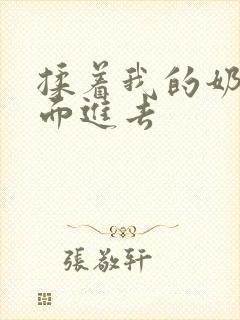 揉着我的奶
而進去
張敬轩